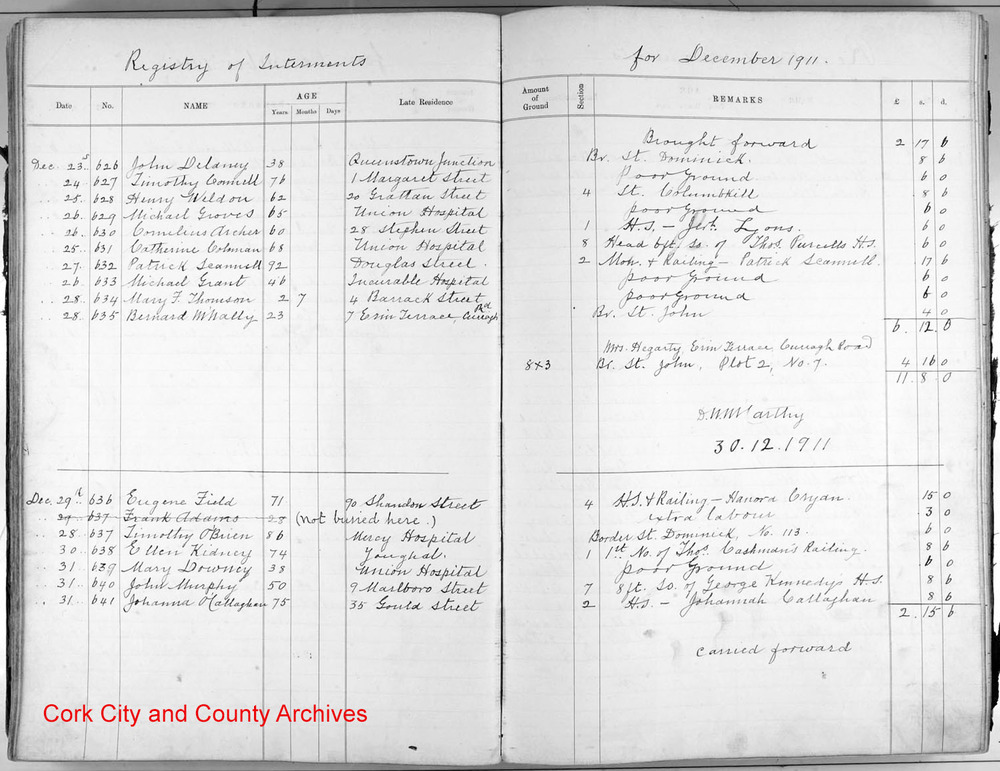 Registry of Interments for December 1911.
Date No. NAME AGE Years Months Days Late Residence Amount of Ground Section REMARKS £ s. d.
Brought forward 2 17 6
Dec. 23rd 626 John Delaney 38 Queenstown Junction Br. St. Dominick. 8 6
24 627 Timothy Connell 76 1 Margaret Street Poor Ground 6 0
.. 25 628 Henry Weldon 62 20 Grattan Street 4 St. Columbkill 8 6
.. 26 629 Michael Groves 65 Union Hospital poor Ground 6 0
.. 26 630 Cornelius Archer 60 28 Stephen Street 1 H.S. - Jerh. Lyons. 6 0
.. 25 631 Catherine Coleman 68 Union Hospital 8 Head 6ft. So. of Thos. Purcells H.S. 6 0
.. 27 632 Patrick Scannell 92 Douglas Street. 2 Mon. & Railing - Patrick Scannell. 17 6
.. 26 633 Michael Grant 46 Incurable Hospital poor Ground 6 0
.. 28 634 Mary F. Thomson 2 7 4 Barrack Street poor Ground 6 0
.. 28 635 Bernard McNally 23 7 Erin Terrace, Curragh Rd Br. St. John 4 0
6 . 12 . 0
Mrs. Hegarty Erin Terrace, Curragh Road
8x3 Br. St. John, Plot 2, No. 7. 4 16 0
11 . 8 . 0
D. W. McCarthy
30.12.1911
Dec. 29th 636 Eugene Field 71 90 Shandon Street 4 H.S. & Railing - Hanora Cryan. 15 0
.. 29 637 Frank Adams 28 (Not buried here.) extra labour 3 0
.. 28 637 Timothy O'Brien 86 Mercy Hospital Border St. Dominick, No. 113. 6 0
.. 30 638 Ellen Kidney 74 Youghal. 1 1st No. of Thos. Cashman's Railing. 8 6
.. 31 639 Mary Downey 38 Union Hospital poor Ground 6 0
.. 31 640 John Murphy 50 9 Marlboro Street 7 8ft. So. of George Kennedy's H.S. 8 6
.. 31 641 Johanna O'Callaghan 75 35 Gould Street 2 H.S. - Johannah Callaghan 8 6
2 . 15 6
carried forward
Cork City and County Archives